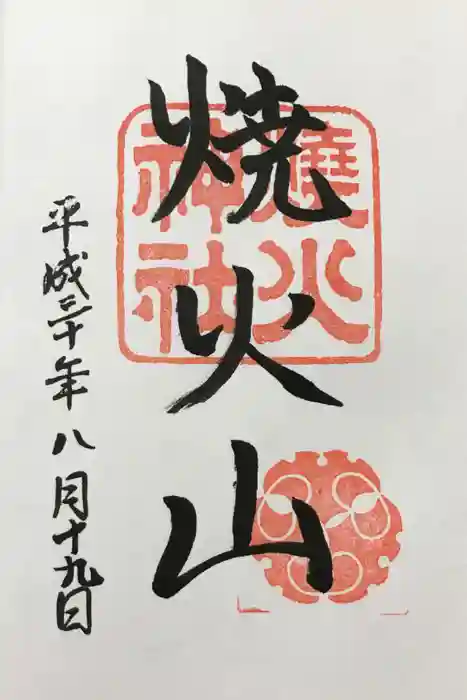 焼火山
焼火
神社
平成三十年八月十九日